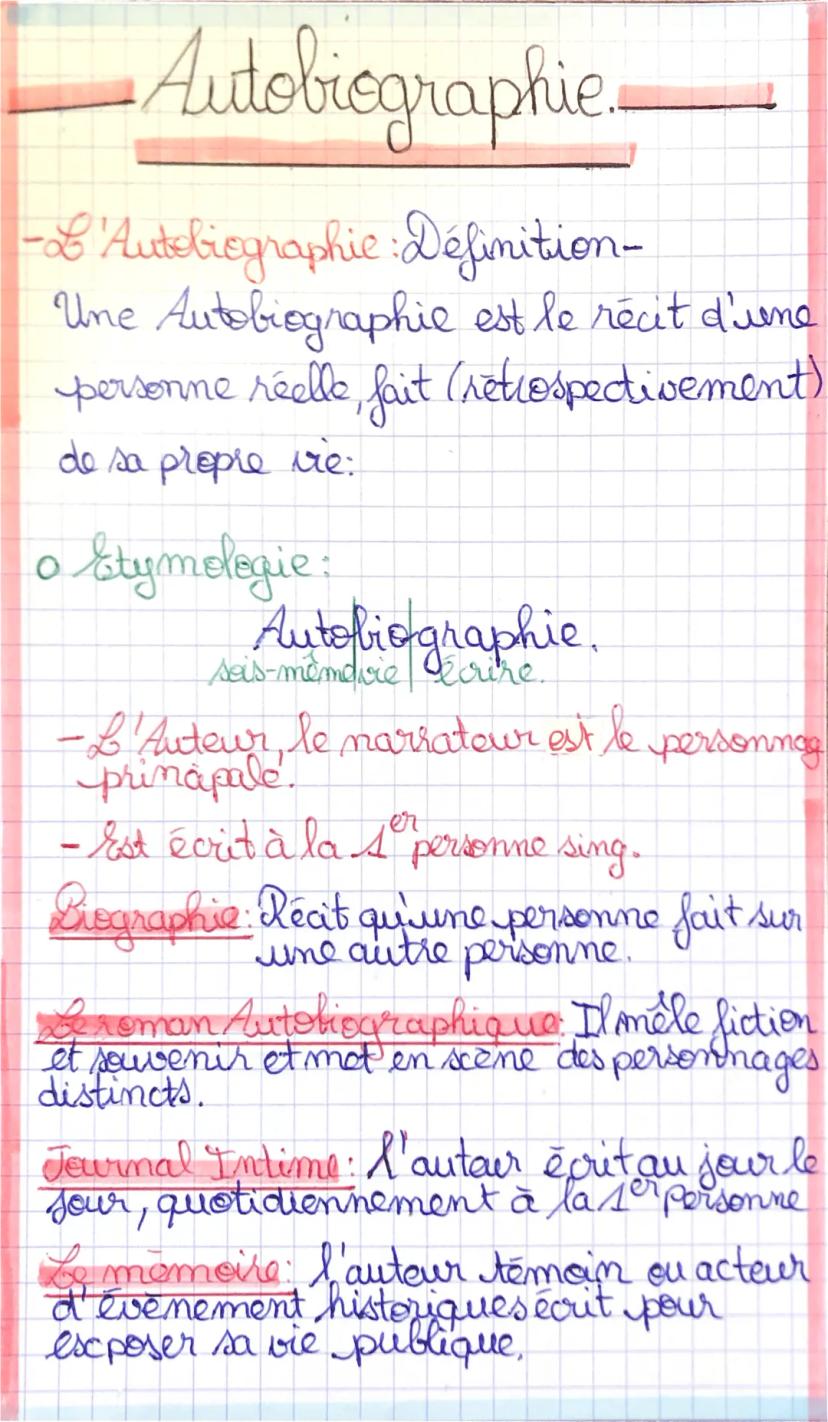 Autobiographie.
-L'Autobiographie: Définition-
Une Autobiographie est le récit d'une
personne réelle, fait (rétrospectivement)
de sa propre vie:
o Etymologie:
Auto|bio|graphie.
sois-même|vie| écrire.
-L'Auteur, le narrateur est le personnag
principale.
- Est écrit à la 1er personne sing.
Biographie: Récit qu'une personne fait sur
une autre personne.
Le roman Autobiographique: Il mêle fiction
et souvenir et met en scène des personnages
distincts.
Journal Intime: l'auteur écrit au jour le
jour, quotidiennement à la 1er personne
Le mémoire: l'auteur témoin ou acteur
d'évènement historiques écrit pour
exposer sa vie publique.